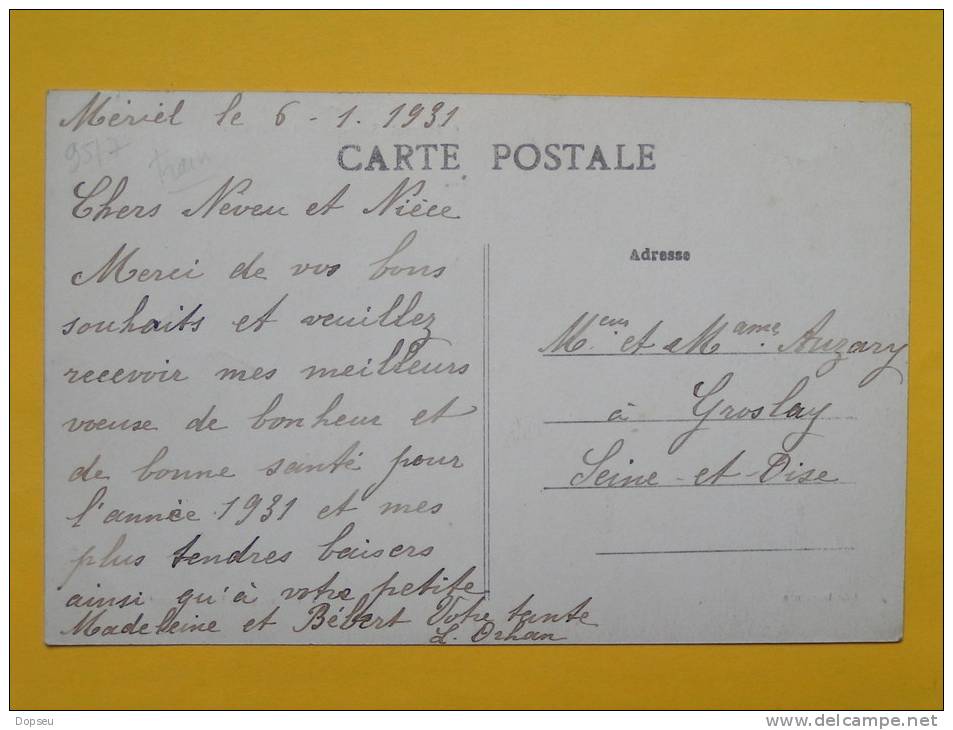 Mériel le 6 - 1. 1931
95/7
train
CARTE POSTALE
Chers Néveu et Nièce
Merci de vos bons
souhaits et veuillez
recevoir mes meilleurs
voeuse de bonheur et
de bonne santé pour
l'année 1931 et mes
plus tendres baisers
ainsi qu'à votre petite
Madeleine et Bébert Votre tante
L. Orhan
Adresse
Meur et Mame Auzary
à Groslay
Seine-et-Oise
Dopseu
www.delcampe.net